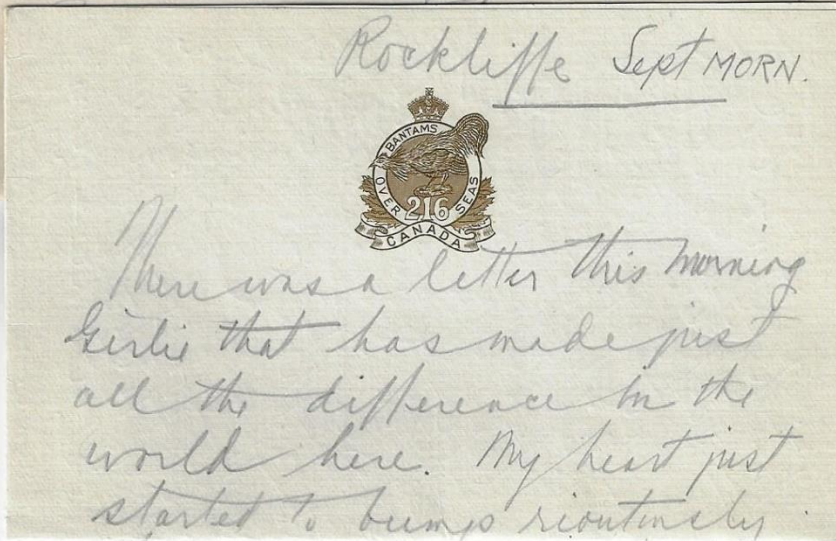 Rockliffe Sept MORN.
BANTAMS
OVER SEAS
216
CANADA
There was a letter this morning
Girlie that has made just
all the difference in the
world here. My heart just
started to bump rioutously